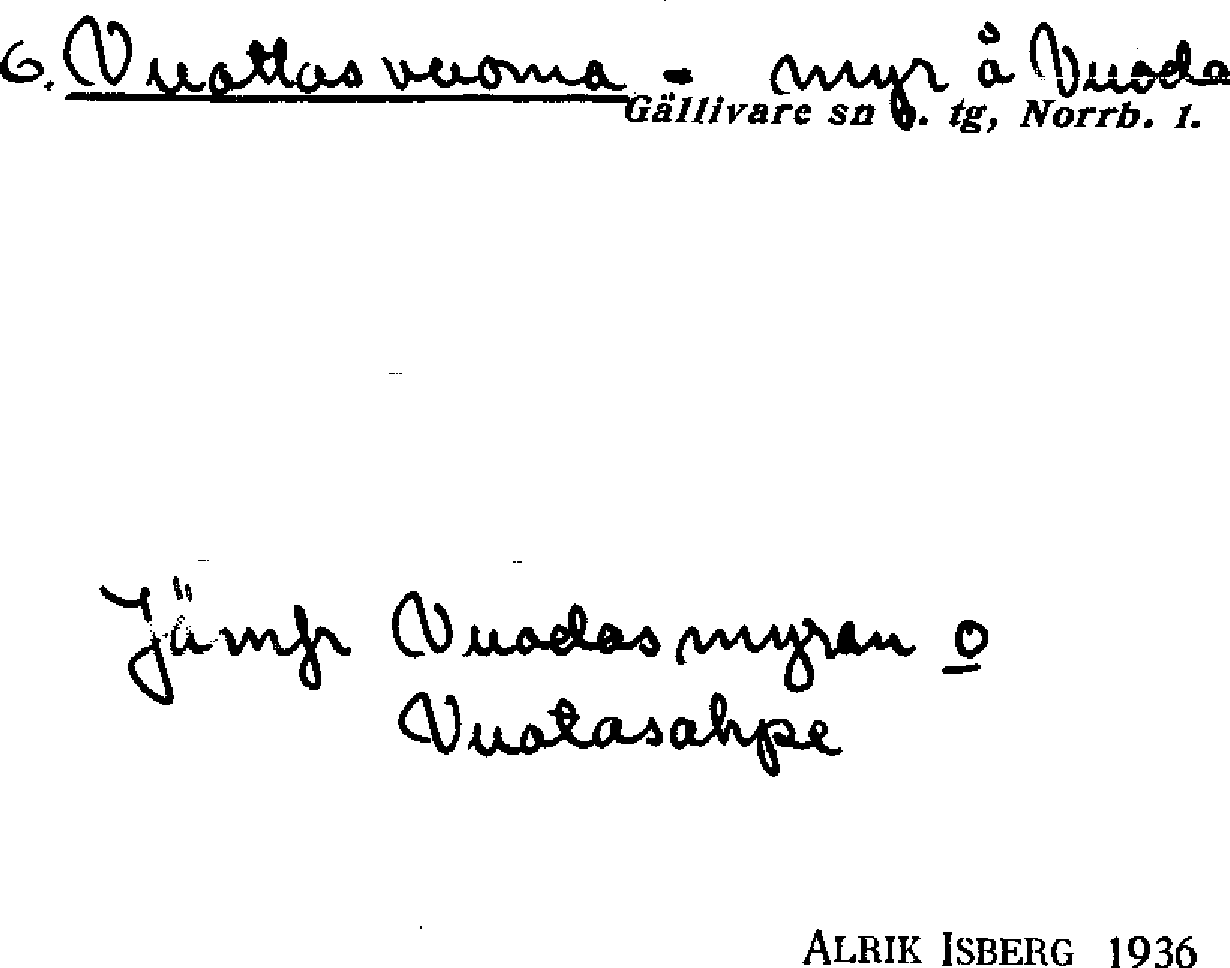 6. Vuottasvuoma - myr å Vuoda
Gällivare sn o. tg, Norrb. l.
Jämfr Vuodasmyran o
Vuotasahpe
ALRIK ISBERG 1936